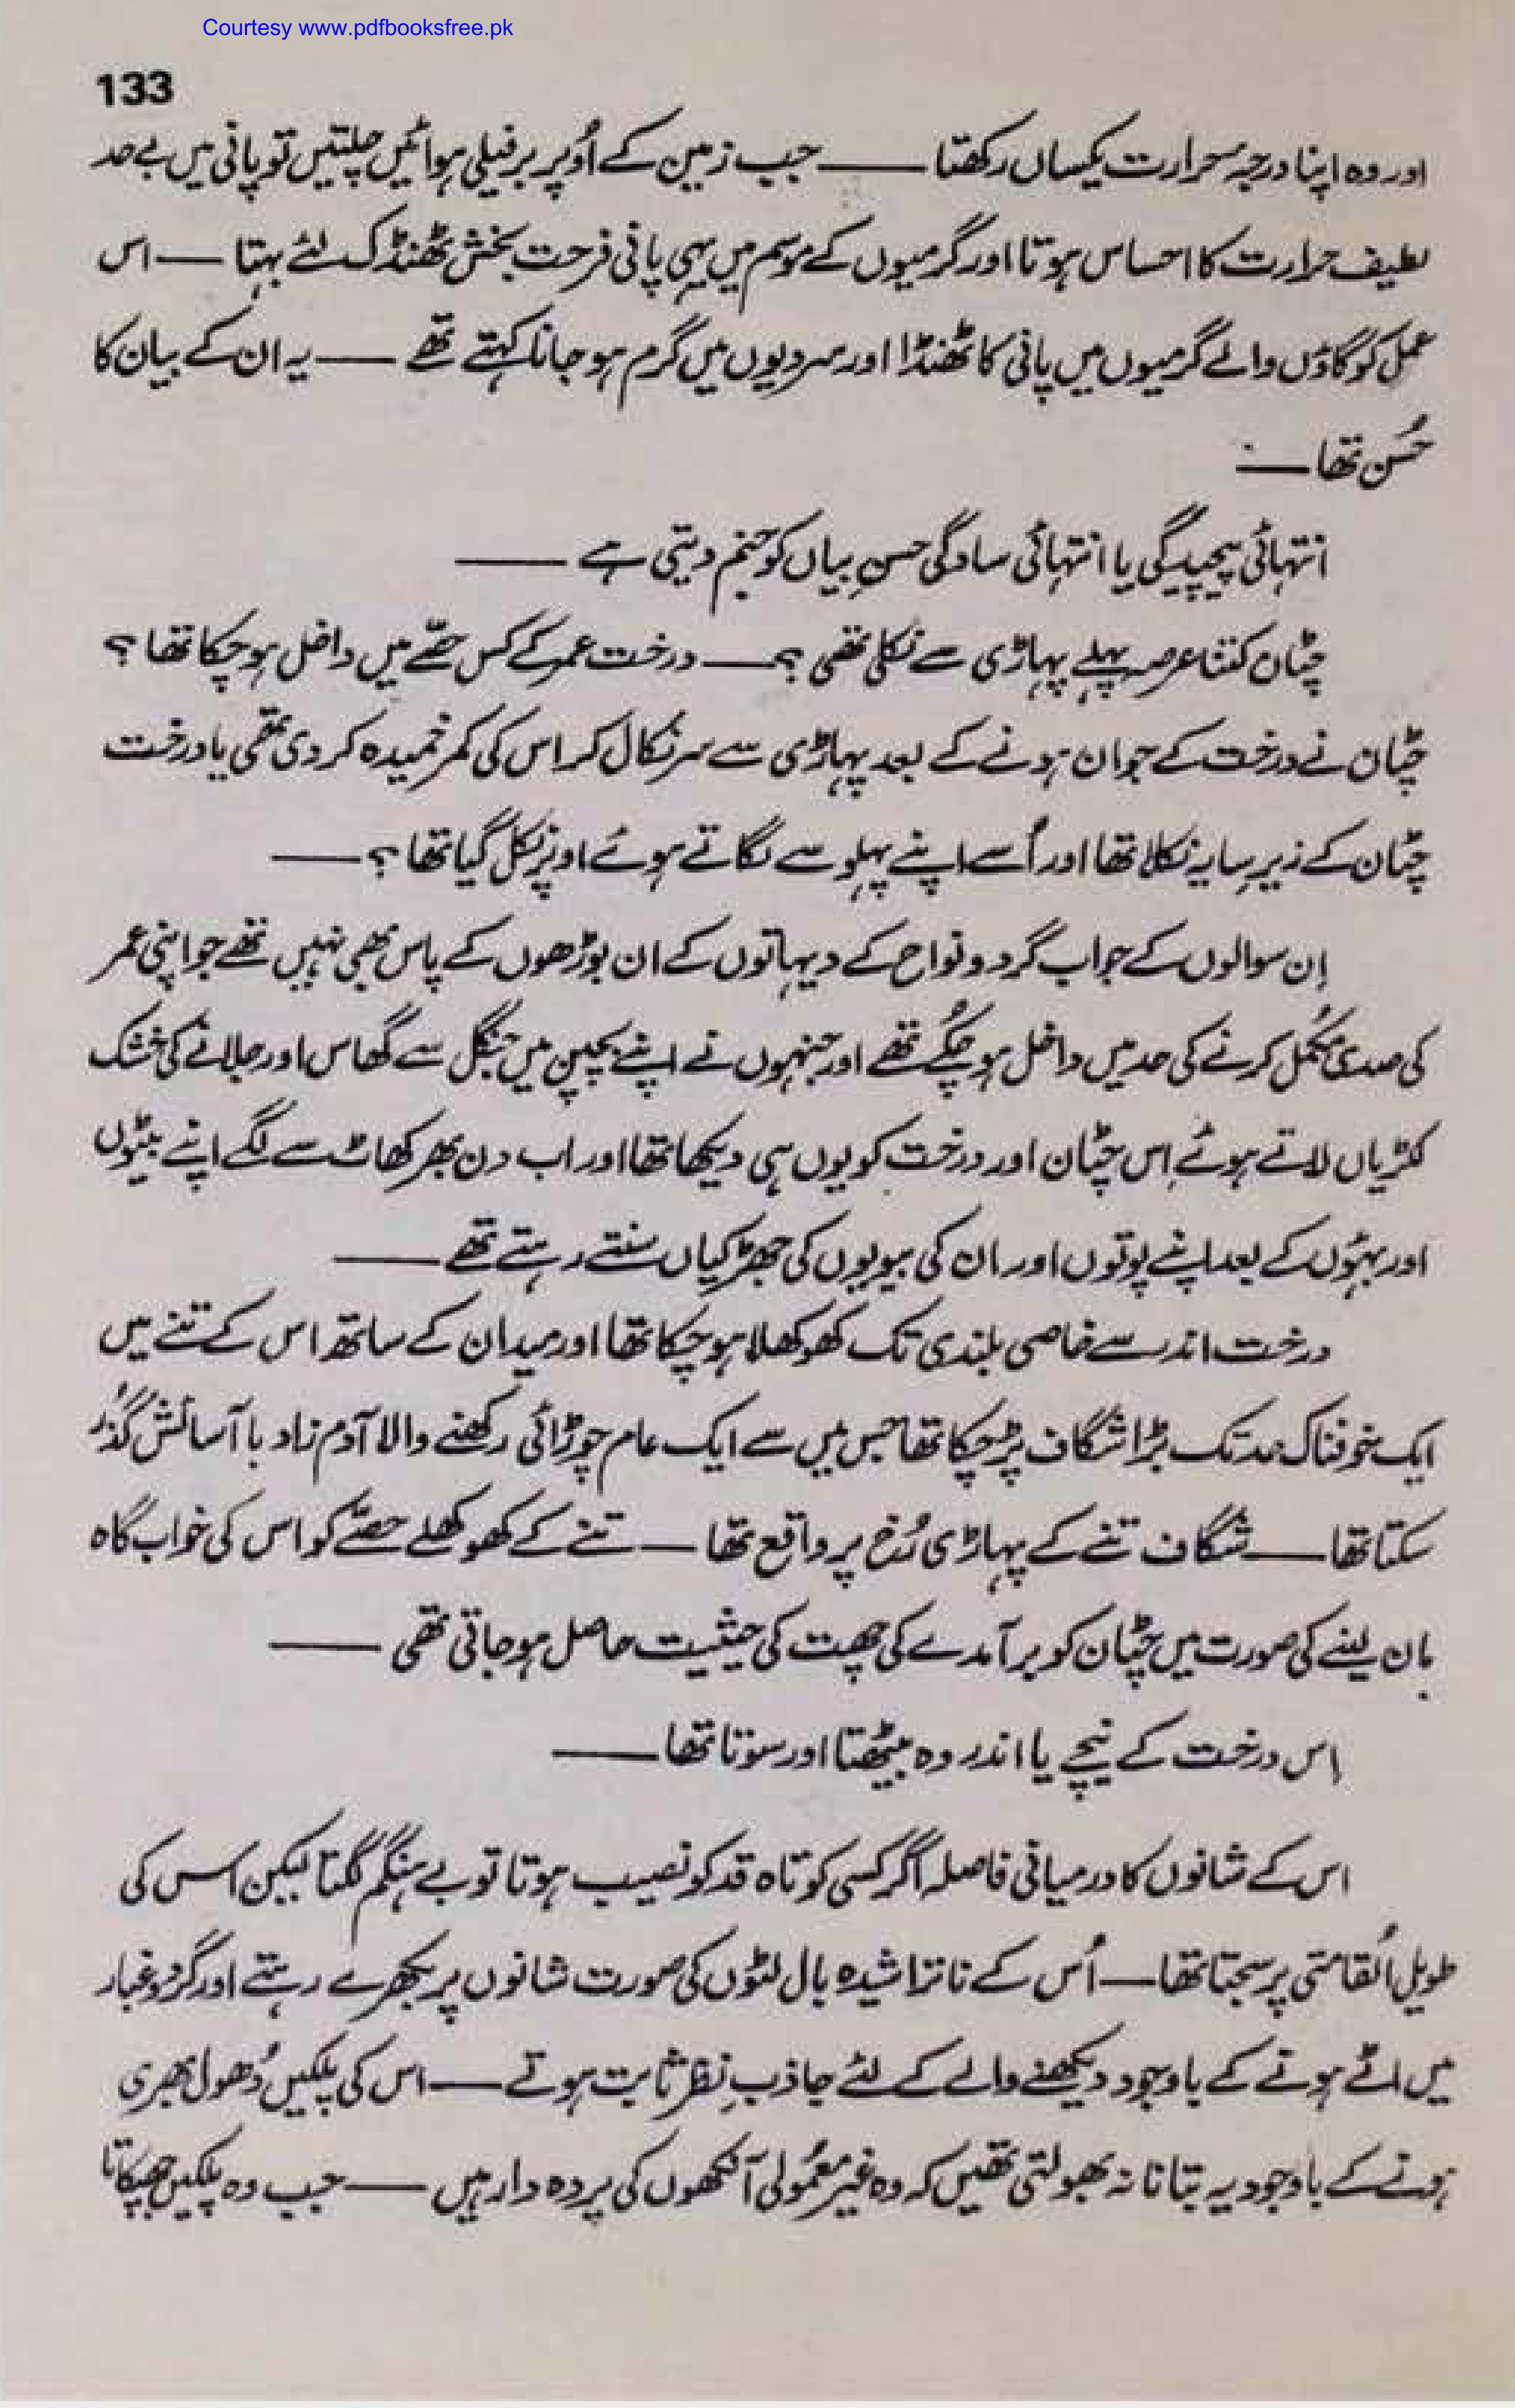 Courtesy www.pdfbooksfree.pk
133
اور وہ اپنا درجہ حرارت یکساں رکھتا —— جب زمین کے اُوپر برفیلی ہوائیں چلتیں تو پانی میں بے حد
لطیف حرارت کا احساس ہوتا اور گرمیوں کے موسم میں یہی پانی فرحت بخش ٹھنڈک لئے بہتا — اس
عمل کو گاؤں والے گرمیوں میں پانی کا ٹھنڈا اور سردیوں میں گرم ہو جانا کہتے تھے —— یہ ان کے بیان کا
حُسن تھا —
انتہائی پیچیدگی یا انتہائی سادگی حسنِ بیاں کو جنم دیتی ہے ——
چٹان کتنا عرصہ پہلے پہاڑی سے نکلی تھی ؟ —— درخت عمر کے کس حصّے میں داخل ہو چکا تھا ؟
چٹان نے درخت کے جوان ہونے کے بعد پہاڑی سے سر نکال کر اس کی کمر خمیدہ کر دی تھی یا درخت
چٹان کے زیرِ سایہ نکلا تھا اور اُسے اپنے پہلو سے لگاتے ہوئے اوپر نکل گیا تھا ؟ ——
اِن سوالوں کے جواب گرد و نواح کے دیہاتوں کے ان بوڑھوں کے پاس بھی نہیں تھے جو اپنی عمر
کی صدی مکمُل کرنے کی حد میں داخل ہو چکُے تھے اور جنہوں نے اپنے بچپن میں جنگل سے گھاس اور جلانے کی خشک
لکڑیاں لاتے ہوئے اِس چٹان اور درخت کو یوں ہی دیکھا تھا اور اب دن بھر کھاٹ سے لگے اپنے بیٹوں
اور بہوؤں کے بعد اپنے پوتوں اور ان کی بیویوں کی جھڑکیاں سنتے رہتے تھے ——
درخت اندر سے خاصی بلندی تک کھوکھلا ہو چکا تھا اور میدان کے ساتھ اس کے تنے میں
ایک خوفناک حد تک بڑا شگاف پڑ چکا تھا جس میں سے ایک عام چوڑائی رکھنے والا آدم زاد با آسائش گُذر
سکتا تھا —— شگاف تنے کے پہاڑی رُخ پر واقع تھا — تنے کے کھوکھلے حصّے کو اس کی خواب گاہ
مان لینے کی صورت میں چٹان کو برآمدے کی چھت کی حیثیت حاصل ہو جاتی تھی ——
اِس درخت کے نیچے یا اندر وہ بیٹھتا اور سوتا تھا ——
اس کے شانوں کا درمیانی فاصلہ اگر کسی کوتاہ قد کو نصیب ہوتا تو بے ہنگم لگتا لیکن اس کی
طویل اُلقامتی پر سجتا تھا — اُس کے ناتراشیدہ بال لٹوں کی صورت شانوں پر بکھرے رہتے اور گرد و غبار
میں اٹے ہونے کے باوجود دیکھنے والے کے لئے جاذبِ نظر ثابت ہوتے —— اس کی پلکیں دُھول بھری
ہونے کے باوجود یہ بتانا نہ بھولتی تھیں کہ وہ غیر معمُولی آنکھوں کی پردہ دار ہیں —— جب وہ پلکیں جھپکاتا